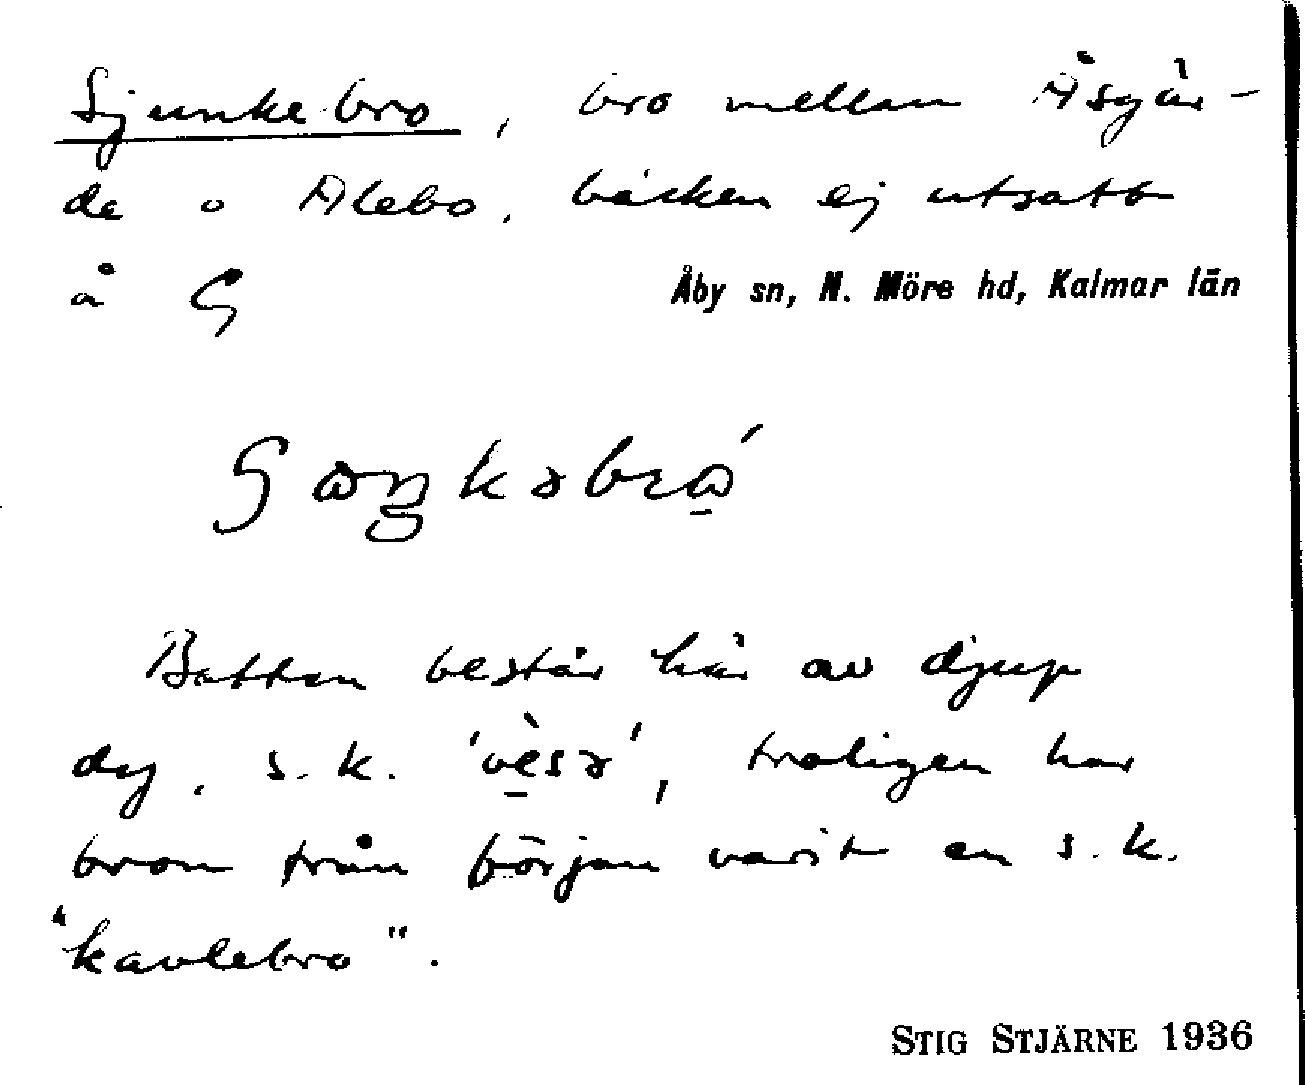 Sjunkebro, bro mellan Åsgär-
da o Alebo, bäcken ej utsatt
å G
Åby sn, N. Möre hd, Kalmar län
Botten består här av djup
dy, s.k. 'vèsə', troligen har
bron från början varit en s.k.
"kavlebro".
STIG STJÄRNE 1936